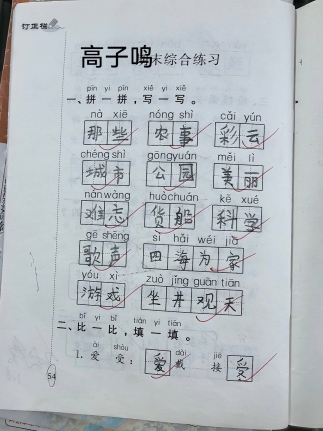 订正栏
高子鸣末综合练习
pīn yi pīn xiě yi xiě
一、拼一拼，写一写。
nà xiē nóng shì cǎi yún
那些 农事 彩云
chéng shì gōng yuán měi lì
城市 公园 美丽
nán wàng huò chuán kē xué
难忘 货船 科学
gē shēng sì hǎi wéi jiā
歌声 四海为家
yóu xì zuò jǐng guān tiān
游戏 坐井观天
bǐ yi bǐ tián yi tián
二、比一比，填一填。
ài shòu dài jiē
1. 爱 受： 爱戴 接受
54